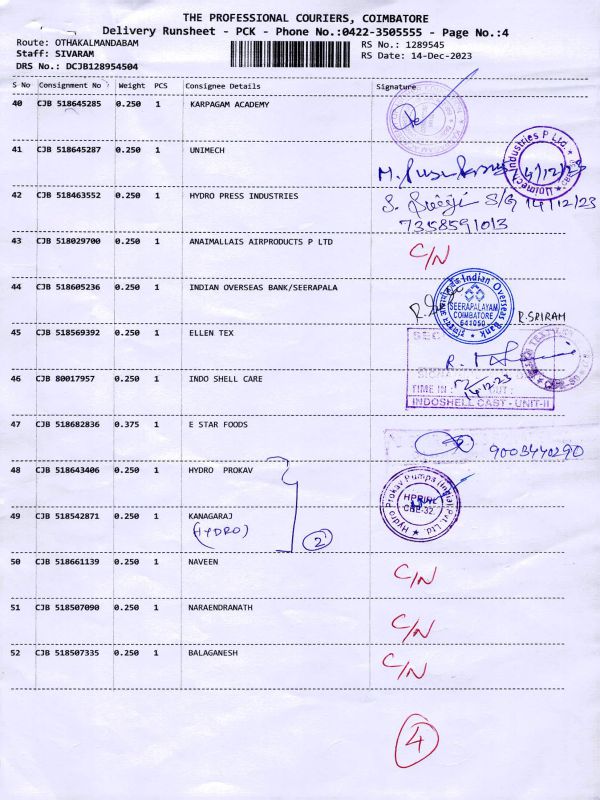 THE PROFESSIONAL COURIERS, COIMBATORE
Delivery Runsheet - PCK - Phone No.:0422-3505555 - Page No.:4
Route: OTHAKALMANDABAM
Staff: SIVARAM
DRS No.: DCJB128954504
RS No.: 1289545
RS Date: 14-Dec-2023
S No Consignment No Weight PCS Consignee Details Signature
40 CJB 518645285 0.250 1 KARPAGAM ACADEMY
41 CJB 518645287 0.250 1 UNIMECH
Unimech Industries P Ltd.
14/12/23
42 CJB 518463552 0.250 1 HYDRO PRESS INDUSTRIES
S. S/G 14/12/23
7358591013
43 CJB 518029700 0.250 1 ANAIMALLAIS AIRPRODUCTS P LTD C/N
44 CJB 518605236 0.250 1 INDIAN OVERSEAS BANK/SEERAPALA
Indian Overseas Bank
SEERAPALAYAM
COIMBATORE
641050
R.SRIRAM
45 CJB 518569392 0.250 1 ELLEN TEX
46 CJB 80017957 0.250 1 INDO SHELL CARE
TIME IN :
14.12.23
INDOSHELL CAST - UNIT-II
47 CJB 518682836 0.375 1 E STAR FOODS
9003440290
48 CJB 518643406 0.250 1 HYDRO PROKAV
Hydro Prokav Pumps (India) Pvt. Ltd.
CBE-32
49 CJB 518542871 0.250 1 KANAGARAJ
(HYDRO)
2
50 CJB 518661139 0.250 1 NAVEEN C/N
51 CJB 518507090 0.250 1 NARAENDRANATH C/N
52 CJB 518507335 0.250 1 BALAGANESH C/N
4